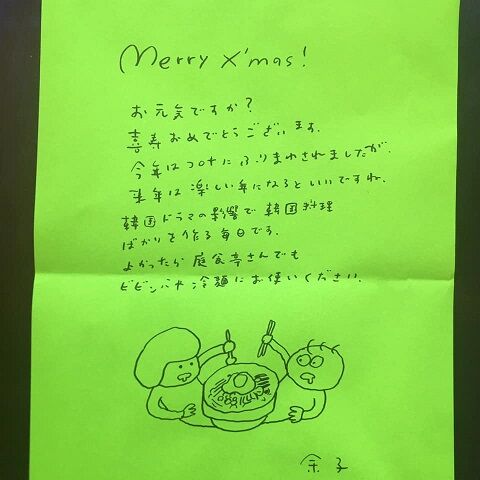 Merry X'mas!
お元気ですか?
喜寿おめでとうございます.
今年はコロナにふりまわされましたが,
来年は楽しい年になるといいですね.
韓国ドラマの影響で韓国料理
ばかりを作る毎日です.
よかったら庭食亭さんでも
ビビンバや冷麺にお使いください.
余子